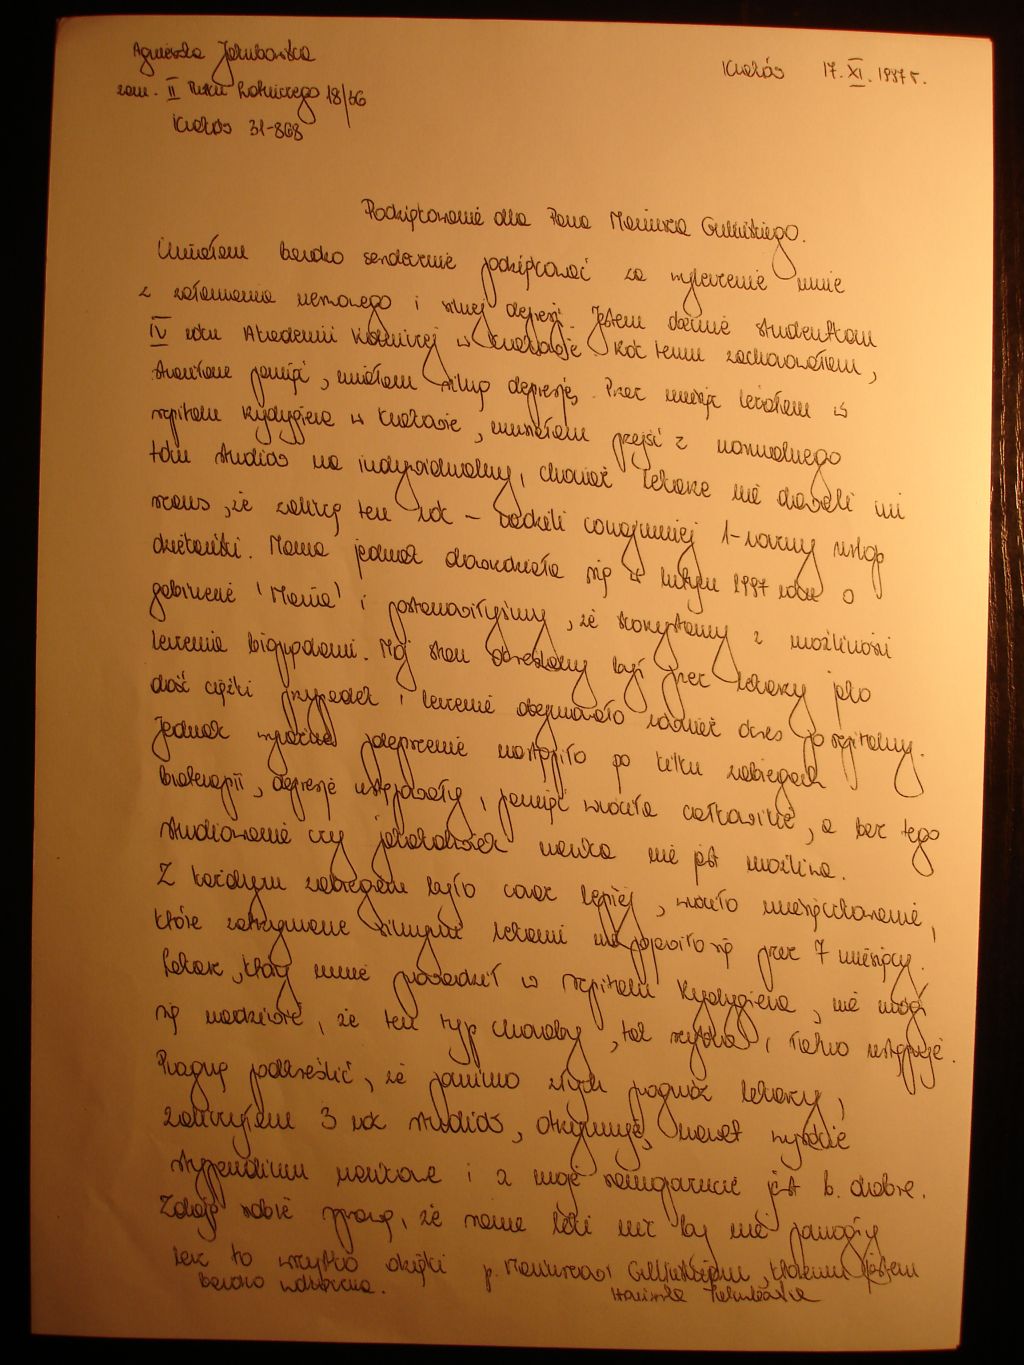 Agnieszka Jakubowska
zam. II Pułku Lotniczego 18/36
Kraków 31-868
Kraków 17.XI.1997r.
Podziękowanie dla Pana Mariusza
Chciałam bardzo serdecznie podziękować za wyleczenie mnie
z załamania nerwowego i silnej depresji. Jestem obecnie studentką
IV roku Akademii Rolniczej w Krakowie. Rok temu zachorowałam,
straciłam pamięć, miałam silną depresję. Przez miesiąc leżałam w
szpitalu Rydygiera w Krakowie, musiałam przejść z normalnego
toku studiów na indywidualny, chociaż lekarze nie dawali mi
szans, że zaliczę ten rok – radzili conajmniej 1-roczny urlop
dziekański. Mama jednak dowiedziała się w lutym 1997 roku o
gabinecie 'Maria' i postanowiłyśmy, że skorzystamy z możliwości
leczenia bioprądami. Mój stan określany był przez lekarzy jako
dość ciężki przypadek i leczenie obejmowało również okres poszpitalny.
Jednak wyraźne polepszenie nastąpiło po kilku zabiegach
bioterapii, depresje ustępowały, pamięć wróciła całkowicie, a bez tego
studiowanie czy jakakolwiek nauka nie jest możliwa.
Z każdym zabiegiem było coraz lepiej, wróciło miesiączkowanie,
które zatrzymane silnymi lekami nie pojawiło się przez 7 miesięcy.
Lekarz, który mnie prowadził w szpitalu Rydygiera, nie mógł
się nadziwić, że ten typ choroby, tak szybko i łatwo ustępuje.
Pragnę podkreślić, że pomimo złych prognoz lekarzy,
zaliczyłam 3 rok studiów, otrzymuję nawet wysokie
stypendium naukowe i moje samopoczucie jest b. dobre.
Zdaję sobie sprawę, że same leki nic by nie pomogły
lecz to wszystko dzięki p. Mariuszowi któremu jestem
bardzo wdzięczna.
Agnieszka Jakubowska